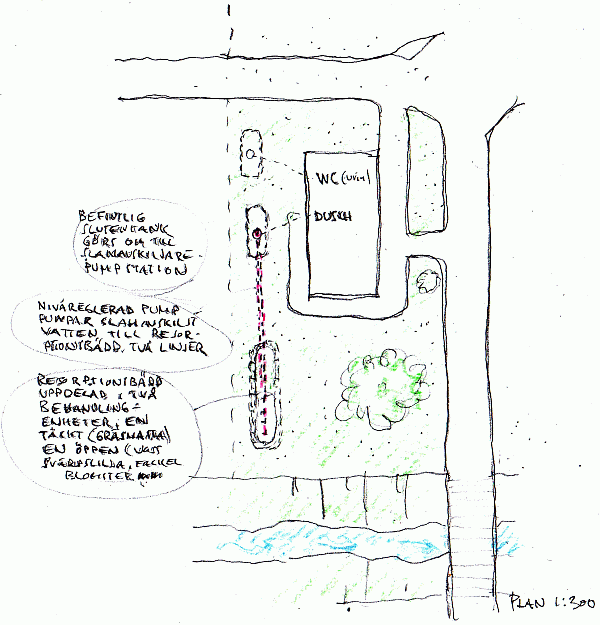 WC (urin)
DUSCH
BEFINTLIG
SLUTEN TANK
GÖRS OM TILL
SLAMAVSKILJARE-
PUMPSTATION
NIVÅREGLERAD PUMP
PUMPAR SLAMAVSKILJT
VATTEN TILL RESOR-
PTIONSBÄDD, TVÅ LINJER
RESORPTIONSBÄDD
UPPDELAD I TVÅ
BEHANDLING-
ENHETER, EN
TÄCKT (GRÄSMATTA)
EN ÖPPEN (VASS
SVÄRDSLILJA, FACKEL
BLOMSTER
PLAN 1:300